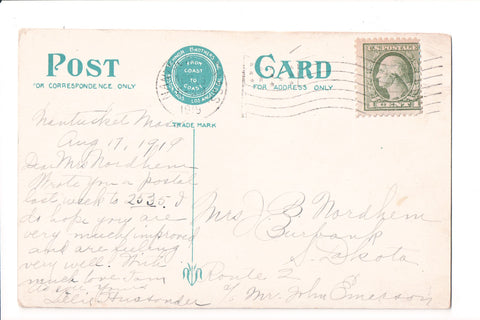 POST CARD
FOR CORRESPONDENCE ONLY
FOR ADDRESS ONLY
BROTHERS
FROM
COAST
TO
COAST
LOS ANGELES, CAL.
TRADE MARK
U.S. POSTAGE
1 CENT 1
Nantucket Mass
Aug 17, 1919
Dear Mrs Nordhem
Wrote you a postal
last week to 2535. I
do hope you are
very much improved
and are feeling
very well. With
much love I am
as ever yours
Mrs J B Nordhem
Burbank
S. Dakota
Route 2
c/o Mr. John Emesson